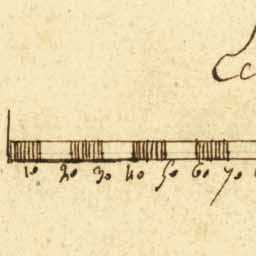 10 20 30 40 50 60 70